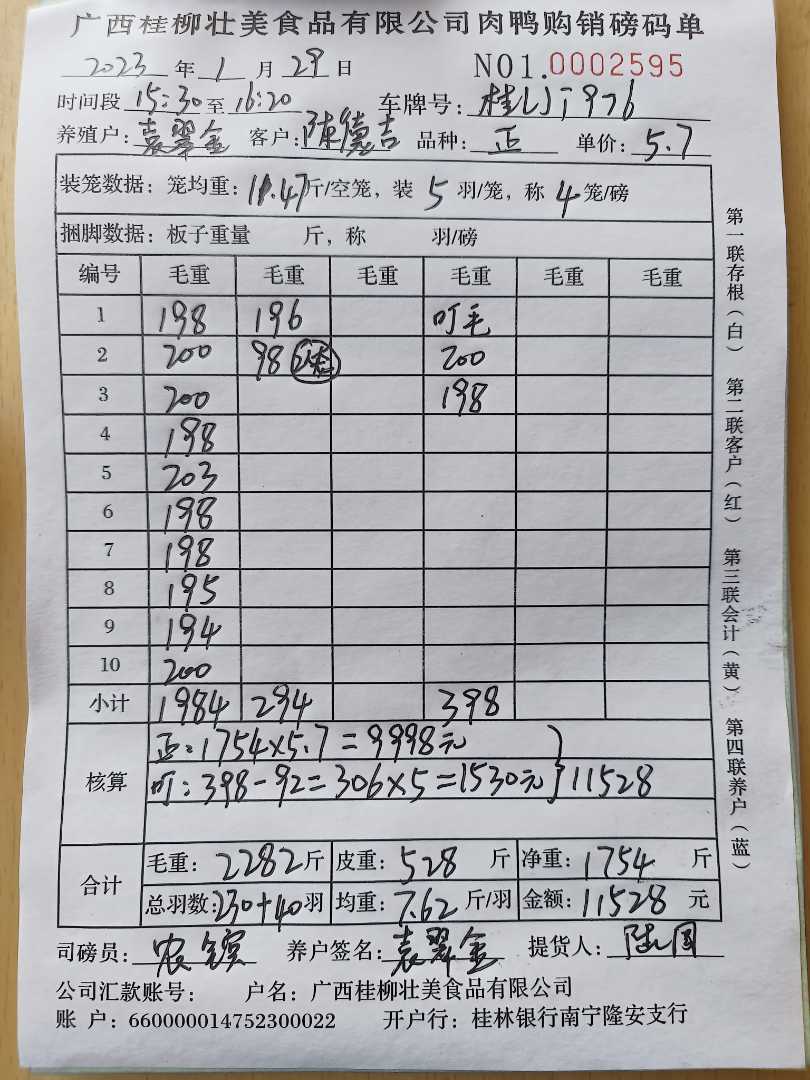 广西桂柳壮美食品有限公司肉鸭购销磅码单
2023 年 1 月 29 日 NO1.0002595
时间段 15:30 至 16:20 车牌号:
养殖户: 袁翠金 客户: 陈德吉 品种: 正 单价: 5.7
装笼数据: 笼均重: 11.47 斤/空笼, 装 5 羽/笼, 称 4 笼/磅
捆脚数据: 板子重量 斤, 称 羽/磅
编号 毛重 毛重 毛重 毛重 毛重 毛重
1 198 196 叮毛
2 200 98 200
3 200 198
4 198
5 203
6 198
7 198
8 195
9 194
10 200
小计 1984 294 398
核算
正: 1754×5.7=9998元
叮: 398-92=306×5=1530元 } 11528
合计
毛重: 2282 斤 皮重: 528 斤 净重: 1754 斤
总羽数: 230+40 羽 均重: 7.62 斤/羽 金额: 11528 元
司磅员: 养户签名: 袁翠金 提货人:
公司汇款账号: 户名: 广西桂柳壮美食品有限公司
账 户: 660000014752300022 开户行: 桂林银行南宁隆安支行
第一联存根(白) 第二联客户(红) 第三联会计(黄) 第四联养户(蓝)